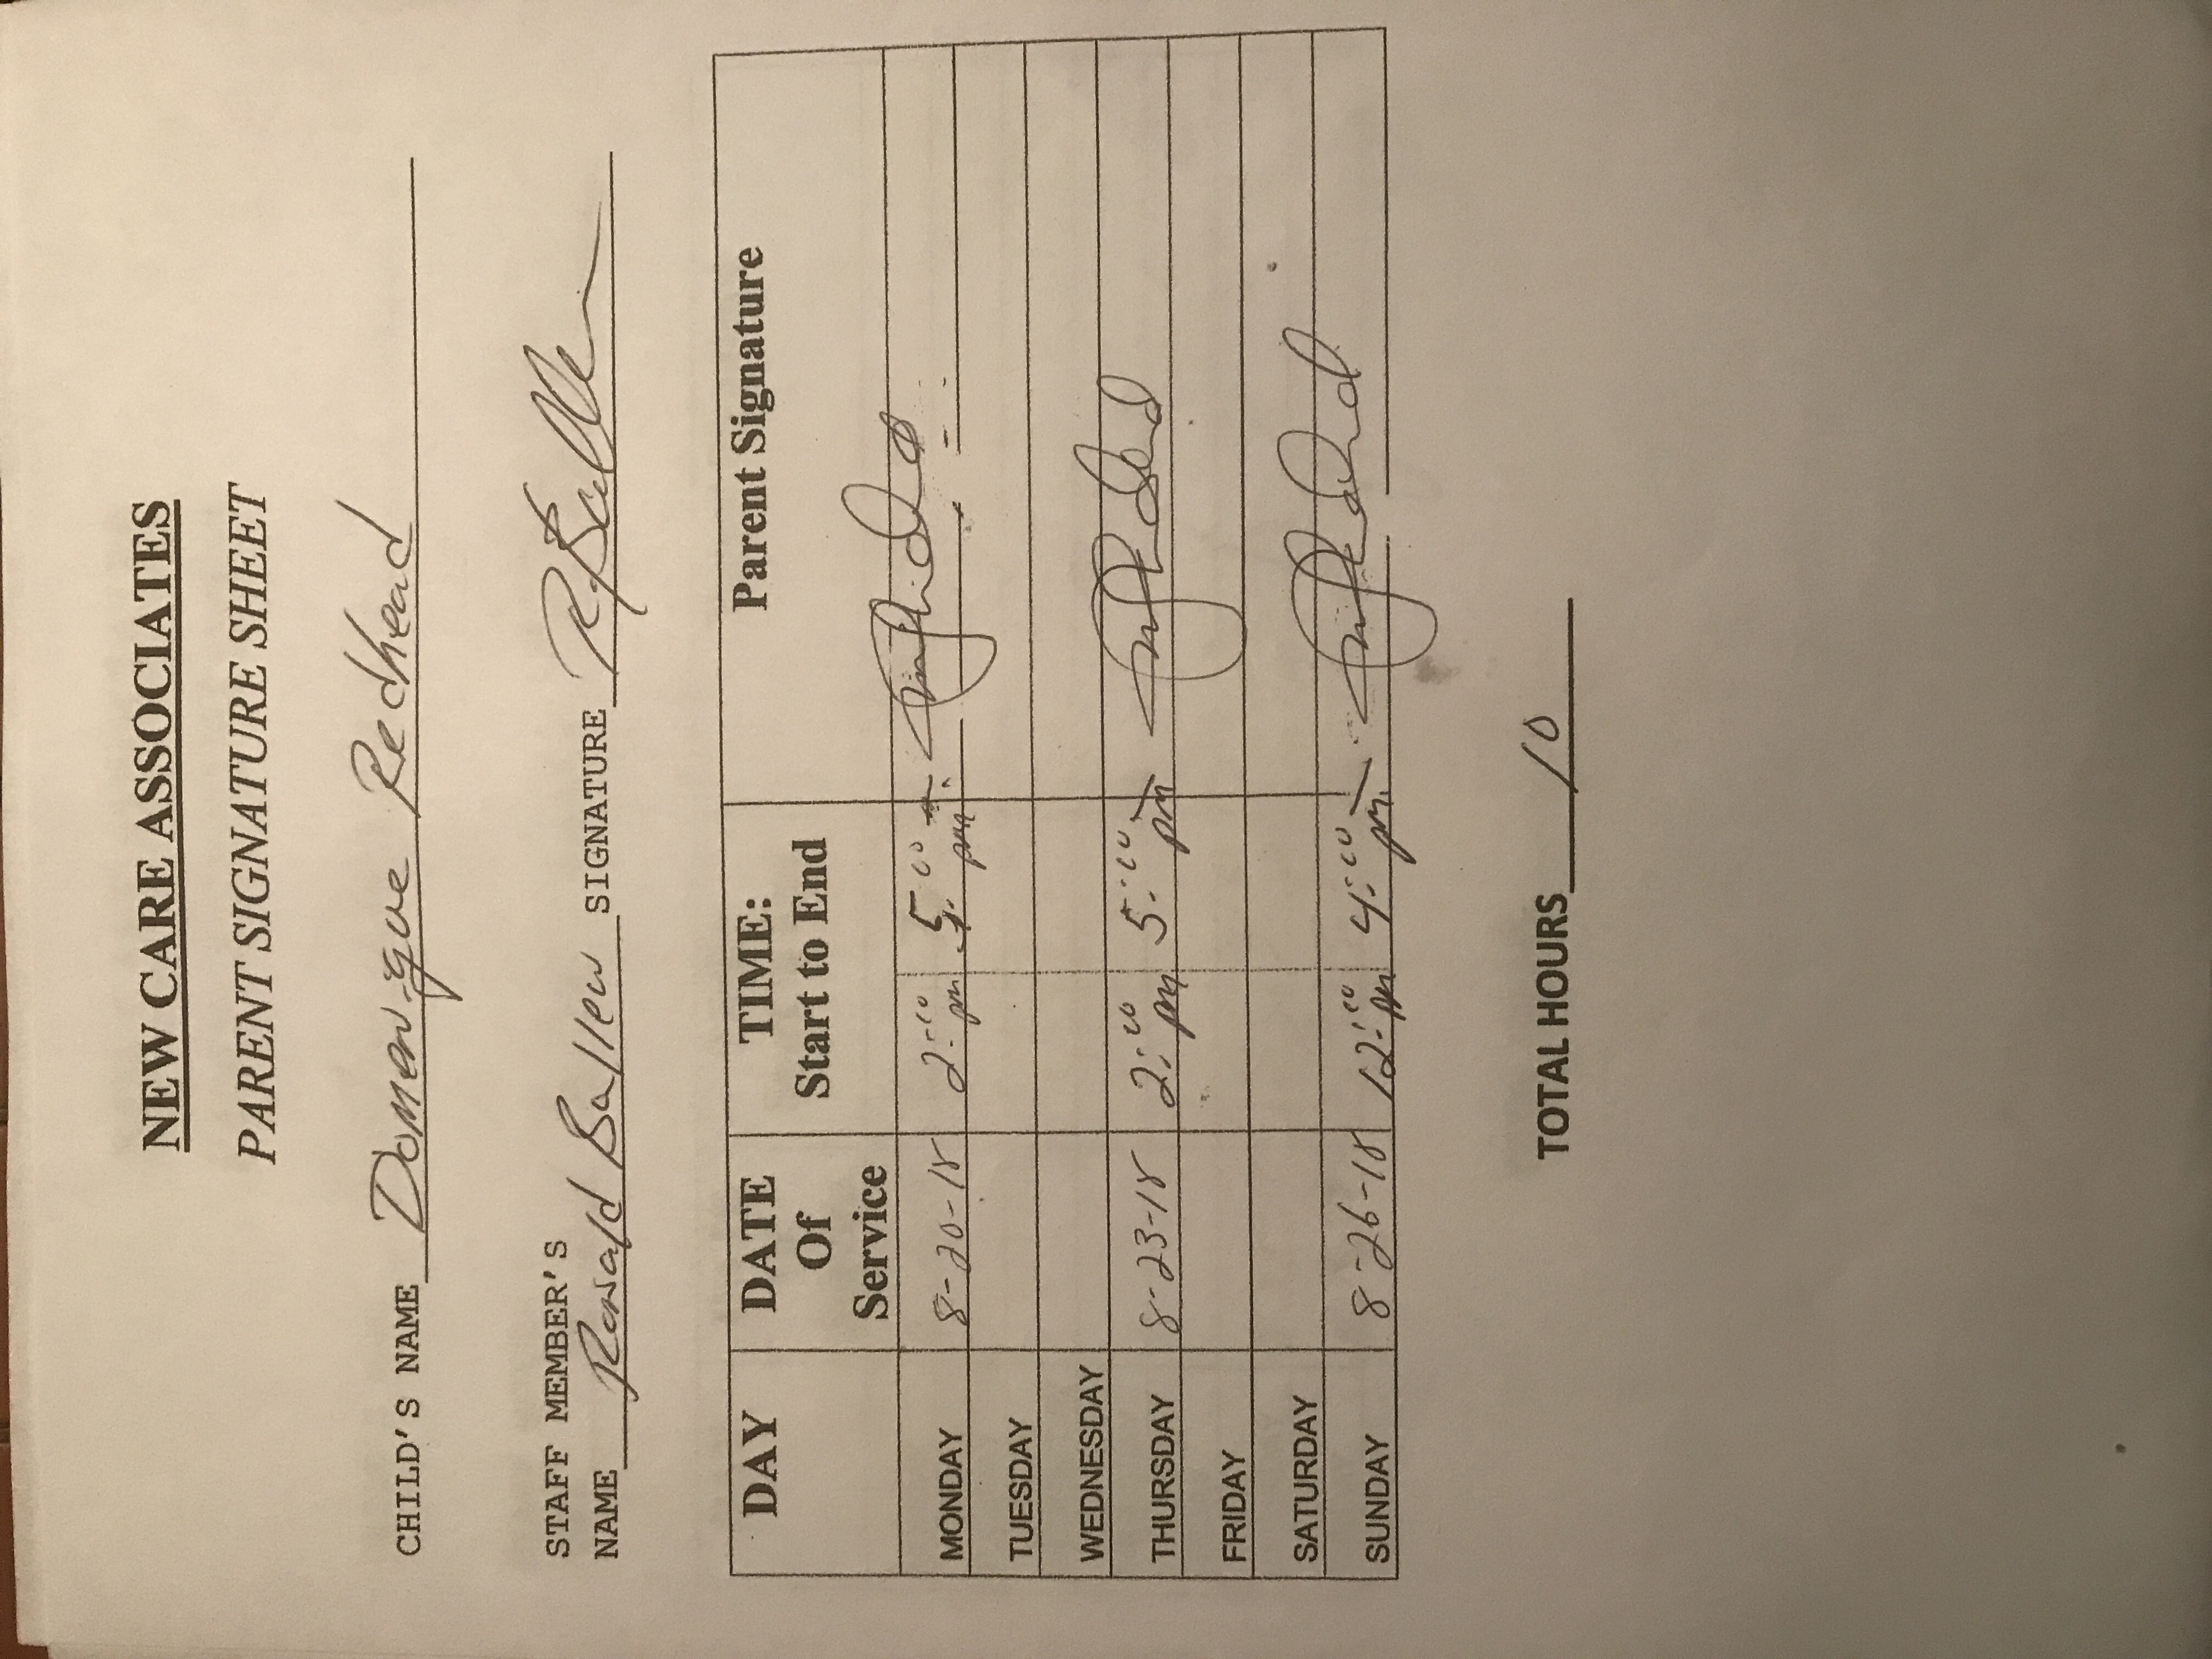 NEW CARE ASSOCIATES
PARENT SIGNATURE SHEET
CHILD'S NAME Domenique Redhead
STAFF MEMBER'S
NAME Ronald Ballew SIGNATURE R. Ballew
DAY DATE Of Service TIME: Start to End Parent Signature
MONDAY 8-20-18 2:00 pm 5:00 pm
TUESDAY
WEDNESDAY
THURSDAY 8-23-18 2:00 pm 5:00 pm
FRIDAY
SATURDAY
SUNDAY 8-26-18 12:00 pm 4:00 pm
TOTAL HOURS 10